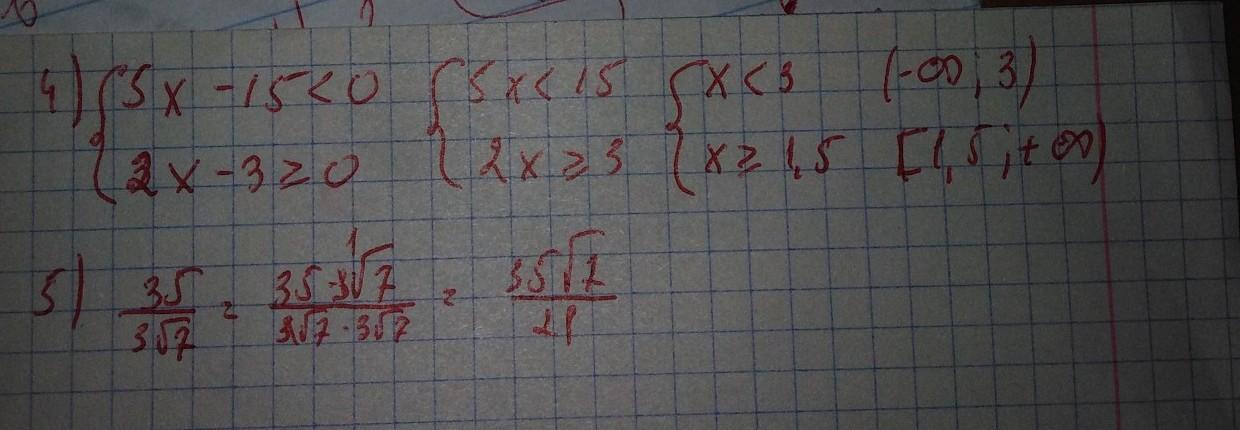 4) { 5x - 15 < 0 { 5x < 15 { x < 3 (-∞; 3)
2x - 3 ≥ 0 2x ≥ 3 x ≥ 1,5 [1,5; +∞)
5) 35/3√7 = 35·3√7/3√7·3√7 = 35√7/21